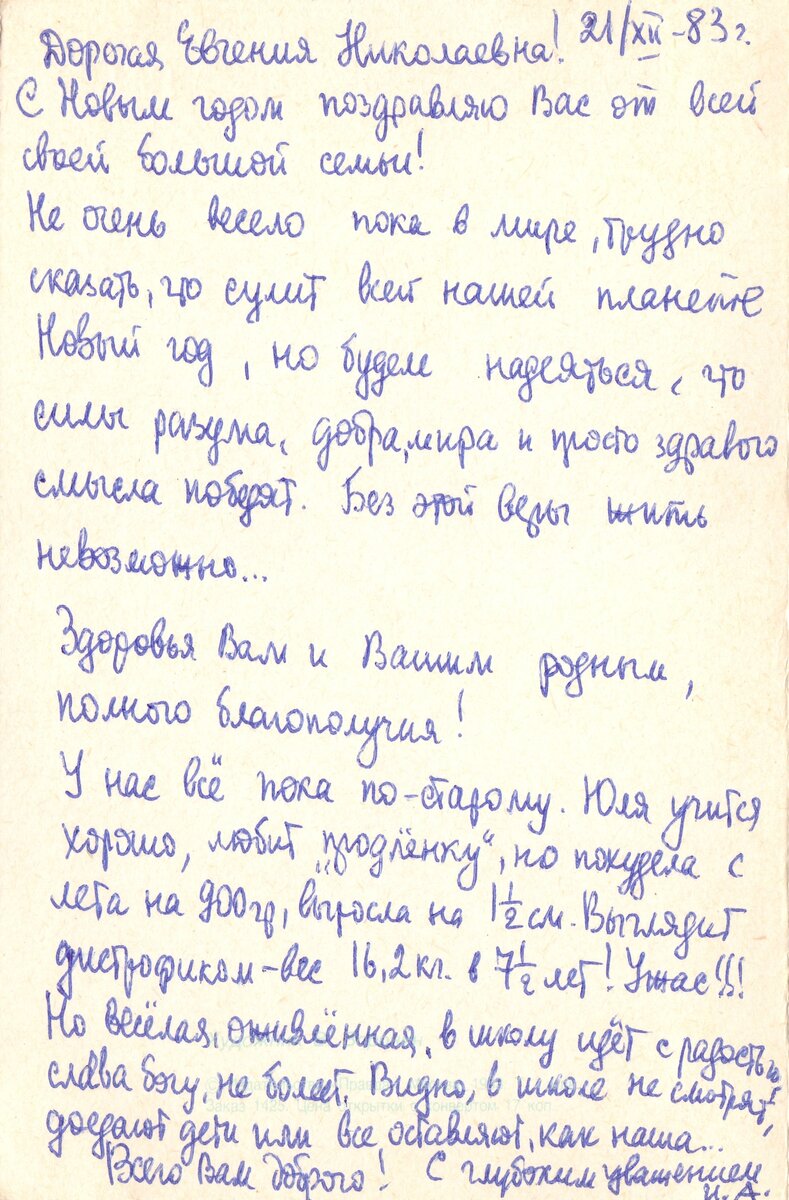 Дорогая Евгения Николаевна! 21/XII-83 г.
С Новым годом поздравляю Вас от всей
своей большой семьи!
Не очень весело пока в мире, трудно
сказать, что сулит всей нашей планете
Новый год, но будем надеяться, что
силы разума, добра, мира и просто здравого
смысла победят. Без этой веры жить
невозможно...
Здоровья Вам и Вашим родным,
полного благополучия!
У нас всё пока по-старому. Юля учится
хорошо, любит "продлёнку", но похудела с
лета на 900 гр, выросла на 1 1/2 см. Выглядит
дистрофиком - вес 16,2 кг. в 7 1/2 лет! Ужас!!!
Но весёлая, оживлённая, в школу идёт с радостью,
слава богу, не болеет. Видно, в школе не смотрят,
доедают дети или все оставляют, как наша...
Всего Вам доброго! С глубоким уважением
И. А.
Заказ 1425. Цена открытки с конвертом 17 коп.